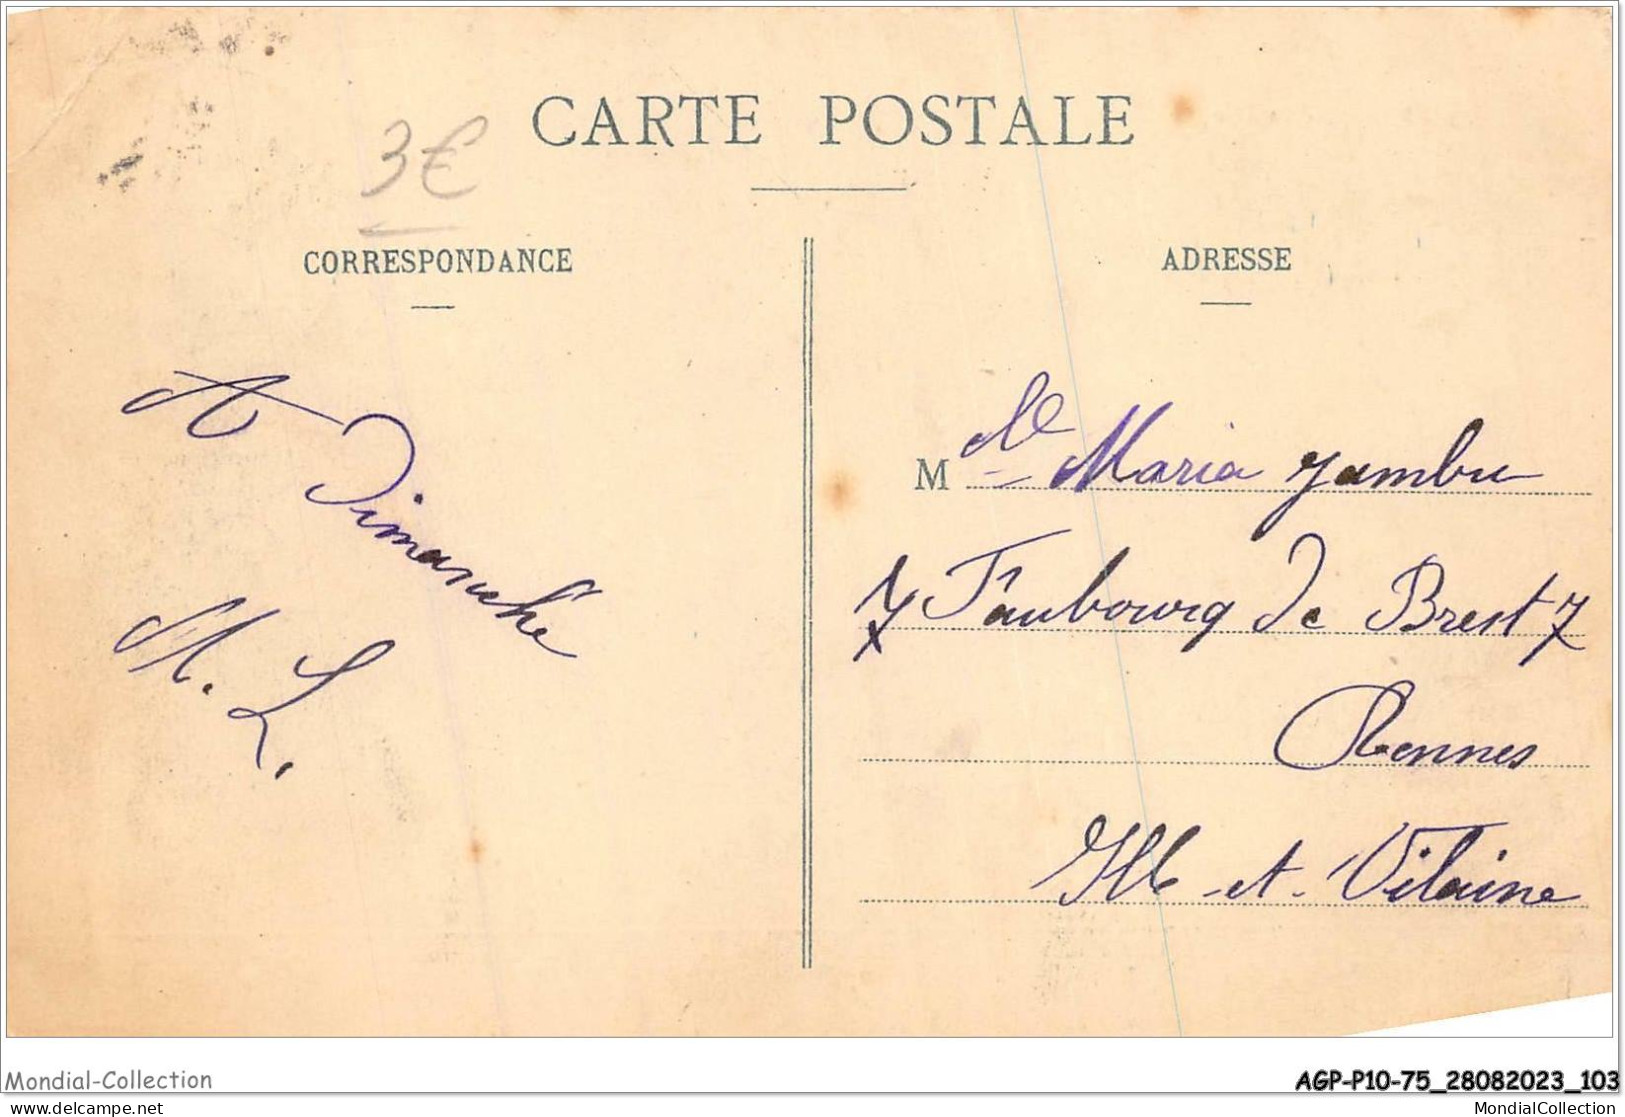 CARTE POSTALE
3€
CORRESPONDANCE
A Dimanche
M. L.
ADRESSE
M lle Maria Jambu
7 Faubourg de Brest 7
Rennes
Ille-et-Vilaine
Mondial-Collection
AGP-P10-75_28082023_103
delcampe.net
MondialCollection